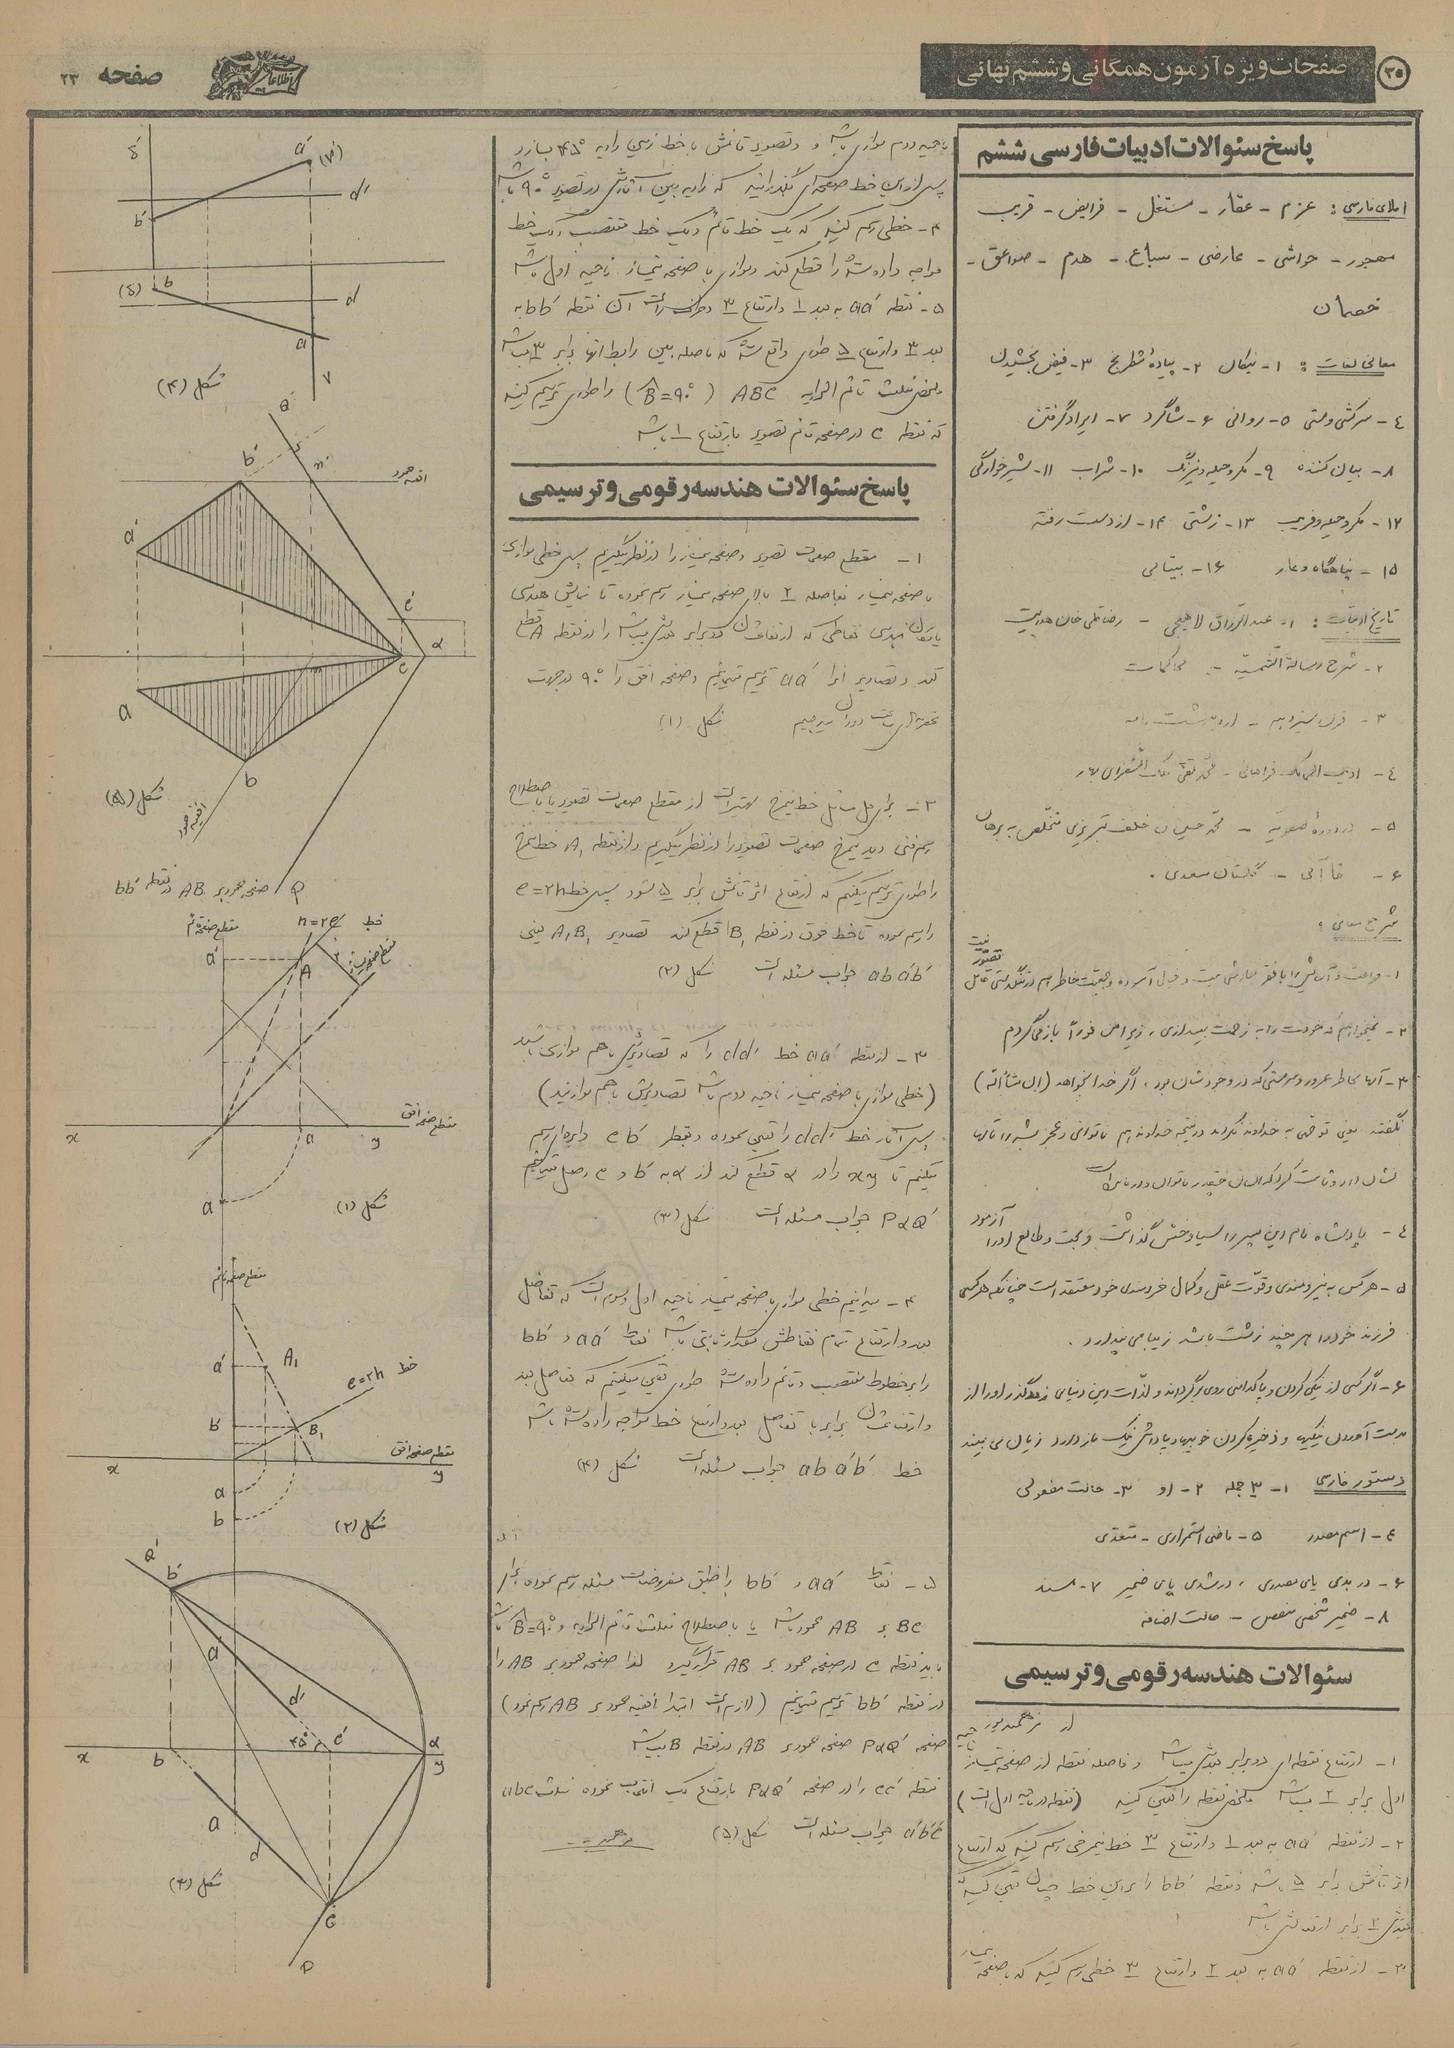 ۳۵
صفحات ویژه آزمون همگانی و ششم نهائی
اطلاعات
صفحه ۲۳
پاسخ سئوالات ادبیات فارسی ششم
املای فارسی : عزم - عقار - مستغل - فرایض - قریب
مهجور - حواشی - عارضی - سباع - هدم - صواعق -
خصمان
معانی لغات : ۱- نیکان ۲- پیادهٔ شطرنج ۳- فیض بخشیدن
٤- سرکشی و مستی ۵- روانی ۶- شاگرد ۷- ایراد گرفتن
۸- بیان کننده ۹- مکر و حیله و نیرنگ ۱۰- شراب ۱۱- شیرخوارگی
۱۲- مکر و حیله و فریب ۱۳- زشتی ۱۴- از دست رفته
۱۵- پناهگاه و غار ۱۶- بیتابی
تاریخ ادبیات : ۱- عبدالرزاق لاهیجی - رضا قلی خان هدایت
۲- شرح رسالة الشمسیه - محاکمات
۳- قرن سیزدهم -
٤- ادیب الممالک فراهانی - محمد تقی ملک الشعرای بهار
۵- در دورهٔ صفویه - محمد حسین بن خلف تبریزی متخلص به برهان
۶- قاآنی - گلستان سعدی .
شرح معانی :
۲- نمیخواهم که خودت را به زحمت بیندازی ، زیرا من فوراً باز میگردم
۳- آنها بخاطر غرور و سرمستی که در وجودشان بود ، اگر خدا بخواهد (ان شاءالله)
نگفتند یعنی توجهی به خداوند نکردند در نتیجه خداوند هم ناتوانی و عجز بشر را به آنها
نشان داد و ثابت کرد که انسان چقدر ناتوان و درمانده است
٤- پادشاه نام این پسر را سیاوخش گذاشت و بخت و طالع او را آزمود
۵- هر کس به نیرومندی و قوّت عقل و کمال خردمندی خود معتقد است چنانکه هر کسی
فرزند خود را هر چند زشت باشد زیبا می پندارد .
۶- اگر کسی از نیکی کردن و پاکدامنی روی برگرداند و لذّات این دنیای زودگذر او را از
بدست آوردن نیکیها و ذخیره کردن خوبیها و پاداش نیک باز دارد زیان می بیند
دستور فارسی ۱- ۳ جمله ۲- او ۳- حالت مفعولی
٤- اسم مصدر ۵- ماضی استمراری - متعدّی
۶- در بدی یای مصدری ، در شدی یای ضمیر ۷- مسند
۸- ضمیر شخصی منفصل - حالت اضافه
سئوالات هندسه رقومی و ترسیمی
۱- ارتفاع نقطه‌ای دو برابر بعدش میباشد و فاصله نقطه از صفحه نیمساز ناحیه
اول برابر ۲ میباشد ملخص نقطه را تعیین کنید (نقطه در ناحیه اول است)
۲- از نقطه aa′ به بعد ۱ و ارتفاع ۳ خط نیمرخی رسم کنید که ارتفاع
اثر قائمش برابر ۵ باشد و نقطه bb′ را بر این خط چنان تعیین کنید که
بعدش ۲ برابر ارتفاعش باشد
۳- از نقطه aa′ به بعد ۲ و ارتفاع ۳ خطی رسم کنید که با صفحه نیمساز
ناحیه دوم موازی باشد و تصویر قائمش با خط زمین زاویه ۴۵° بسازد
پس از این خط صفحه‌ای بگذرانید که زاویه بین آثارش در تصویر ۹۰° باشد
۴- خطی رسم کنید که یک خط قائم و یک خط منتصب و یک خط
مواجه داده شده را قطع کند و موازی با صفحه نیمساز ناحیه اول باشد
۵- نقطه aa′ به بعد ۱ و ارتفاع ۳ و در سمت راست آن نقطه bb′ به
بعد ۳ و ارتفاع ۵ طوری واقع شده که فاصله بین رابط آنها برابر ۳ میباشد
ملخص مثلث قائم الزاویه ABC (B̂=۹۰°) را طوری ترسیم کنید
که نقطه C در صفحه قائم تصویر بارتفاع ۱ باشد
پاسخ سئوالات هندسه رقومی و ترسیمی
۱- مقطع صفحات تصویر و صفحه نیمساز را در نظر میگیریم پس خطی موازی
با صفحه نیمساز بفاصله ۲ بالای صفحه نیمساز رسم نموده تا نمایش هندسی
یا مکان هندسی نقاطی که ارتفاعشان دو برابر بعدشان میباشد را در نقطه A قطع
کند و تصاویر آنرا aa′ ترسیم مینمائیم و صفحه افق را ۹۰° در جهت
عقربه‌های ساعت دوران میدهیم شکل (۱)
۲- برای حل مسائل خط نیمرخ بهتر است از مقطع صفحات تصویر یا باصطلاح
رسم فنی دید نیمرخ صفحات تصویر را در نظر میگیریم و از نقطه A₁ خط نیمرخ
را طوری ترسیم میکنیم که ارتفاع اثر قائمش برابر ۵ شود پس خط e=۲h
را رسم نموده تا خط فوق در نقطه B₁ قطع کند تصاویر A₁B₁ یعنی
ab a′b′ جواب مسئله است شکل (۲)
۳- از نقطه aa′ خط dd′ را که تصاویرش با هم موازی باشند
(خطی موازی با صفحه نیمساز ناحیه دوم باشد تصاویرش با هم موازیند)
پس آثار خط dd′ را تعیین نموده و بقطر b′c دایره‌ای رسم
میکنیم تا xy را در α قطع کند از α به b′ و c وصل مینمائیم
PαQ′ جواب مسئله است شکل (۳)
۴- میدانیم خطی موازی با صفحه نیمساز ناحیه اول و سوم است که تفاضل
بعد و ارتفاع تمام نقاطش مقدار ثابتی باشد نقاط aa′ و bb′
را بر خطوط منتصب و قائم داده شده طوری تعیین میکنیم که تفاضل بعد
و ارتفاعشان برابر با تفاضل بعد و ارتفاع خط مواجه داده شده باشد
خط ab a′b′ جواب مسئله است شکل (۴)
۵- نقاط aa′ و bb′ را طبق مفروضات مسئله رسم نموده
BC بر AB عمود باشد یا باصطلاح مثلث قائم الزاویه و B̂=۹۰° باشد
باید نقطه C در صفحه عمود بر AB قرار گیرد لذا صفحه عمود بر AB را
در نقطه bb′ ترسیم مینمائیم (لازم است ابتدا افقیه عمود بر AB رسم نمود)
صفحه PαQ′ صفحه عمود بر AB در نقطه B میباشد
نقطه cc′ را در صفحه PαQ′ بارتفاع یک انتخاب نموده مثلث abc
a′b′c′ جواب مسئله است شکل (۵)
δ′ a′ (۷′) d′ b′
(δ) b d a ۷
شکل (۴)
Q′ b′ n′ a′ c′ α c m a b
شکل (۵)
P صفحه عمود بر AB در نقطه bb′
خط n=۲e
مقطع صفحه قائم
a′ A ۲
مقطع صفحه افق
x a y
a
شکل (۱)
مقطع صفحه قائم
a′ A₁ خط e=۲h
b′ B₁
مقطع صفحه افق
x y
a
b
شکل (۲)
Q′ b′ a′ d′ ۴۵° c′ α
x b y
a d
شکل (۳)
c
P